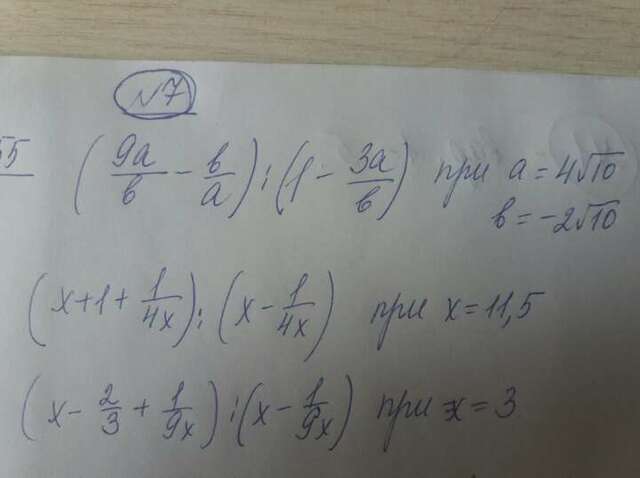 №7
55 (9a/в - в/a) : (1 - 3a/в) при a = 4√10
в = -2√10
(x + 1 + 1/4x) : (x - 1/4x) при x = 11,5
(x - 2/3 + 1/9x) : (x - 1/9x) при x = 3